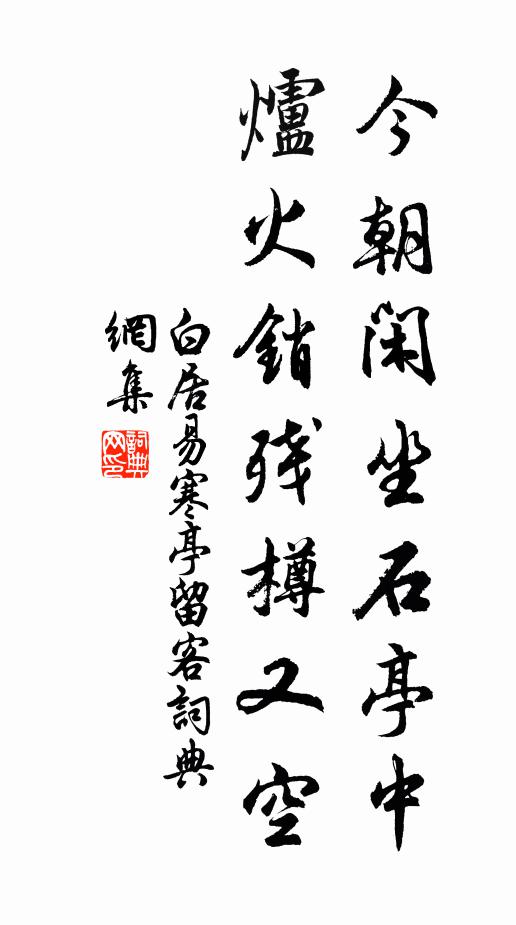 今朝閑坐石亭中
爐火銷殘樽又空
白居易寒亭留客詞典
網集
詞典网印